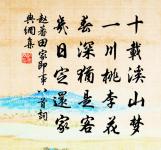 十載溪山夢
一川桃李花
春深猶是客
幾日定還家
趙著田家即事八首詞
典綢集